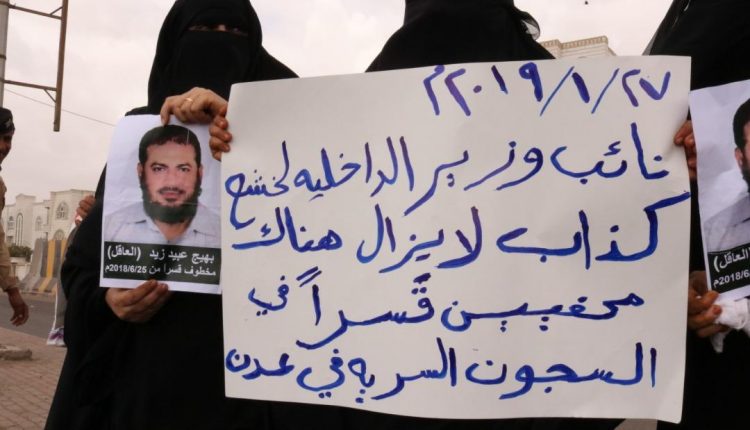 ٢٠١٩/١/٢٧م
نائب وزير الداخليه لخشع
كذاب لا يزال هناك
مخفيين قسراً في
السجون السريه في عدن
بهيج عبيد زيد (العاقل)
مخطوف قسراً من 2018/6/25م
(العاقل)
2018/6/م